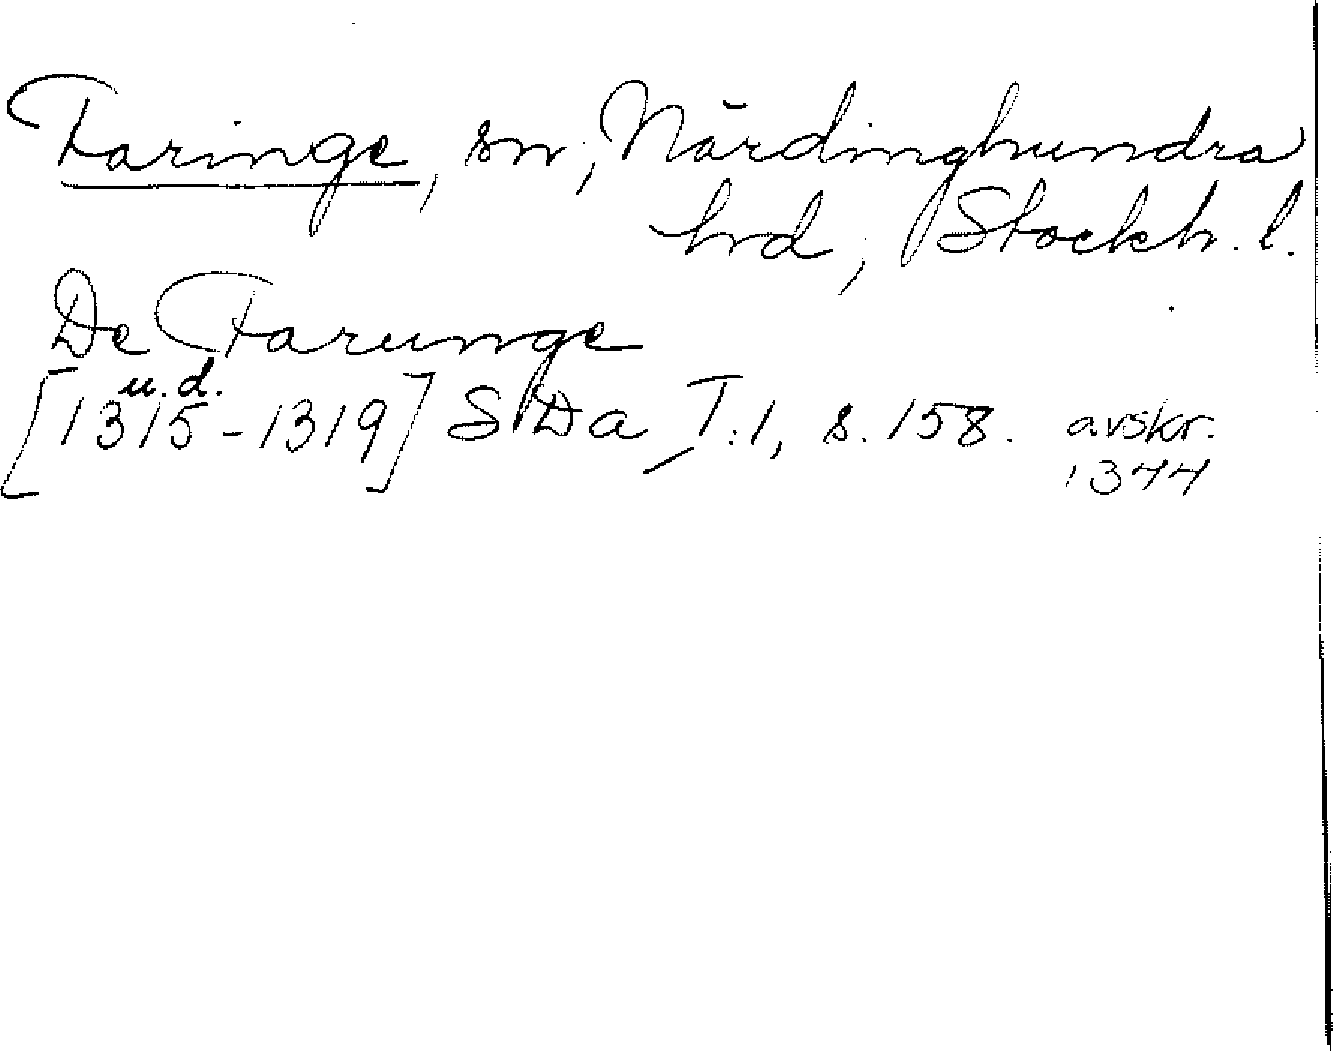 Faringe, sn, Närdinghundra
hrd, Stockh. l.
De Farunge
u.d.
[1315-1319] SDa, T:1, s. 158. avskr.
1344